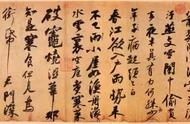 闇中偷
夜半真有力何殊
年子病起頭已白
春江欲入戶雨勢
不已雨小屋如漁舟濛
水雲裏空庖煮寒
破竈燒濕葦那
知是寒食但見烏
銜帋君門深